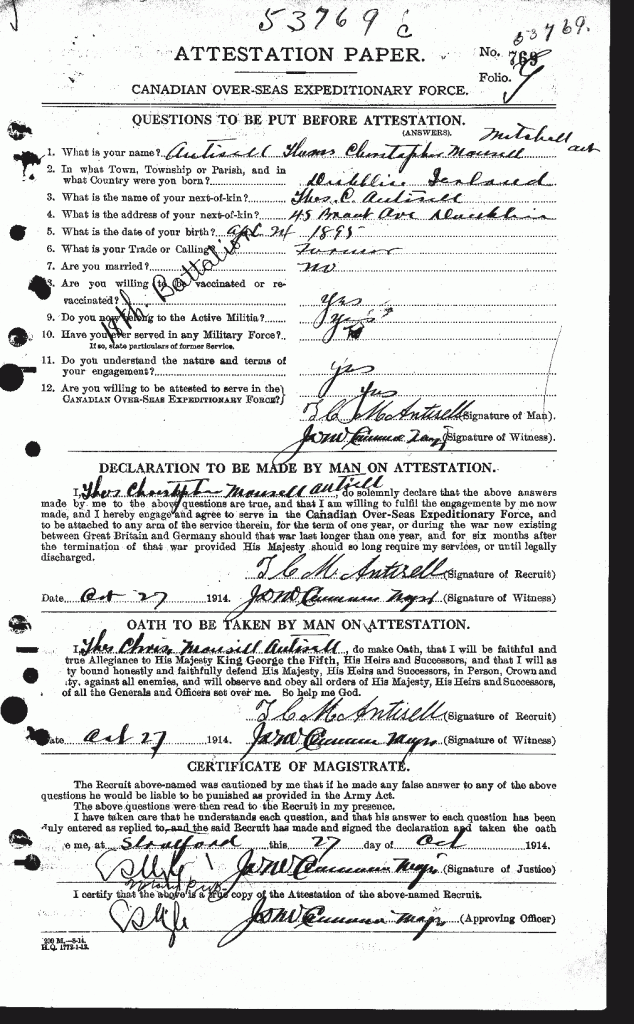 53769
c
53769.
ATTESTATION PAPER.
No. 769
Folio.
CANADIAN OVER-SEAS EXPEDITIONARY FORCE.
QUESTIONS TO BE PUT BEFORE ATTESTATION.
(ANSWERS).
Mitchell
Ont
1. What is your name? Antisell Thomas Christopher Monsell
2. In what Town, Township or Parish, and in
what Country were you born? Dublin Ireland
3. What is the name of your next-of-kin? Thos. C. Antisell
4. What is the address of your next-of-kin? 45 Ave Dublin
5. What is the date of your birth? 1895
6. What is your Trade or Calling? Farmer
7. Are you married? No
8. Are you willing to be vaccinated or re-
vaccinated? Yes
9. Do you now belong to the Active Militia? Yes
10. Have you ever served in any Military Force?
If so, state particulars of former Service.
11. Do you understand the nature and terms of
your engagement? Yes
12. Are you willing to be attested to serve in the
CANADIAN OVER-SEAS EXPEDITIONARY FORCE? Yes
18th Battalion
T C M Antisell (Signature of Man).
(Signature of Witness).
DECLARATION TO BE MADE BY MAN ON ATTESTATION.
I, Thos Christopher Monsell Antisell, do solemnly declare that the above answers
made by me to the above questions are true, and that I am willing to fulfil the engagements by me now
made, and I hereby engage and agree to serve in the Canadian Over-Seas Expeditionary Force, and
to be attached to any arm of the service therein, for the term of one year, or during the war now existing
between Great Britain and Germany should that war last longer than one year, and for six months after
the termination of that war provided His Majesty should so long require my services, or until legally
discharged.
T C M Antisell (Signature of Recruit)
Date Oct 27 1914. (Signature of Witness)
OATH TO BE TAKEN BY MAN ON ATTESTATION.
I, Thos Chris Monsell Antisell, do make Oath, that I will be faithful and
true Allegiance to His Majesty King George the Fifth, His Heirs and Successors, and that I will as
ty bound honestly and faithfully defend His Majesty, His Heirs and Successors, in Person, Crown and
ty, against all enemies, and will observe and obey all orders of His Majesty, His Heirs and Successors,
of all the Generals and Officers set over me. So help me God.
T C M Antisell (Signature of Recruit)
ate Oct 27 1914. (Signature of Witness)
CERTIFICATE OF MAGISTRATE.
The Recruit above-named was cautioned by me that if he made any false answer to any of the above
questions he would be liable to be punished as provided in the Army Act.
The above questions were then read to the Recruit in my presence.
I have taken care that he understands each question, and that his answer to each question has been
duly entered as replied to, and the said Recruit has made and signed the declaration and taken the oath
e me, at Stratford this 27 day of Oct 1914.
(Signature of Justice)
I certify that the above is a true copy of the Attestation of the above-named Recruit.
(Approving Officer)
200 M.—8-14.
H.Q. 1772-1-13.